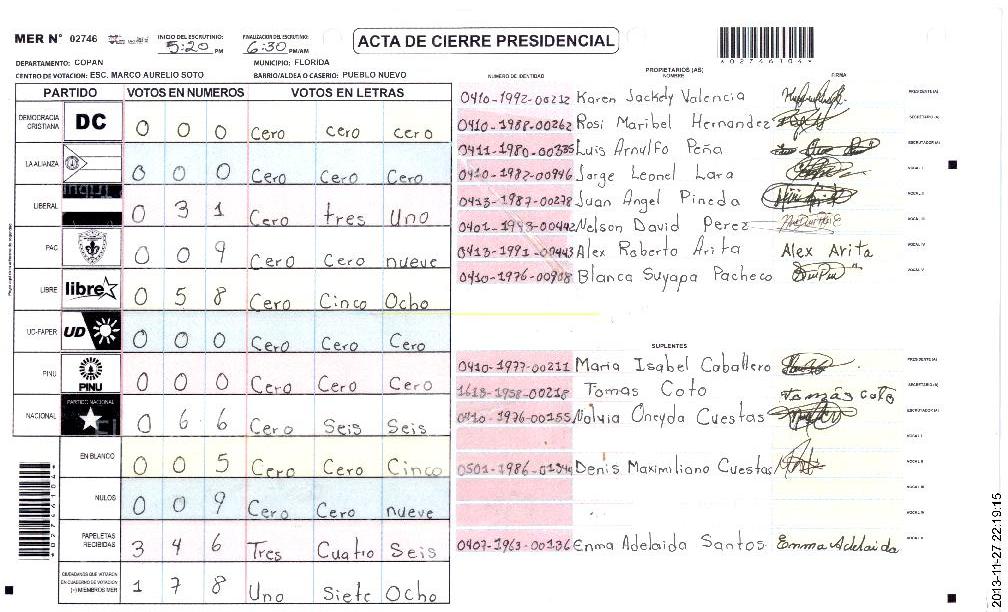 MER N° 02746
INICIO DEL ESCRUTINIO: 5:20 PM
FINALIZACION DEL ESCRUTINIO: 6:30 PM/AM
ACTA DE CIERRE PRESIDENCIAL
*02746104*
DEPARTAMENTO: COPAN
MUNICIPIO: FLORIDA
CENTRO DE VOTACION: ESC. MARCO AURELIO SOTO
BARRIO/ALDEA O CASERIO: PUEBLO NUEVO
PARTIDO VOTOS EN NUMEROS VOTOS EN LETRAS
DEMOCRACIA CRISTIANA DC 0 0 0 Cero Cero Cero
LA ALIANZA 0 0 0 Cero Cero Cero
LIBERAL 0 3 1 Cero tres Uno
PAC 0 0 9 Cero Cero nueve
LIBRE libre 0 5 8 Cero Cinco Ocho
UD-FAPER UD 0 0 0 Cero Cero Cero
PINU PINU 0 0 0 Cero Cero Cero
NACIONAL PARTIDO NACIONAL 0 6 6 Cero Seis Seis
EN BLANCO 0 0 5 Cero Cero Cinco
NULOS 0 0 9 Cero Cero nueve
PAPELETAS RECIBIDAS 3 4 6 Tres Cuatro Seis
CIUDADANOS QUE VOTARON EN CUADERNO DE VOTACION (+) MIEMBROS MER 1 7 8 Uno Siete Ocho
NUMERO DE IDENTIDAD
PROPIETARIOS (AS)
NOMBRE
FIRMA
0410-1992-00212 Karen Jackely Valencia PRESIDENTE(A)
0410-1988-00262 Rosi Maribel Hernandez SECRETARIO(A)
0411-1980-00335 Luis Arnulfo Peña ESCRUTADOR(A)
0410-1982-00946 Jorge Leonel Lara VOCAL I
0413-1987-00278 Juan Angel Pineda VOCAL II
0401-1993-00442 Nelson David Perez VOCAL III
0413-1991-00443 Alex Roberto Arita Alex Arita VOCAL IV
0410-1976-00908 Blanca Suyapa Pacheco VOCAL V
SUPLENTES
0410-1977-00211 Maria Isabel Caballero PRESIDENTE(A)
1613-1958-00218 Tomas Coto Tomás coto SECRETARIO(A)
0410-1976-00155 Nolvia Oneyda Cuestas ESCRUTADOR(A)
VOCAL I
0501-1986-01344 Denis Maximiliano Cuestas VOCAL II
VOCAL III
VOCAL IV
0407-1963-00136 Enma Adelaida Santos Emma Adelaida VOCAL V
*02746104*
2013-11-27 22:19:15